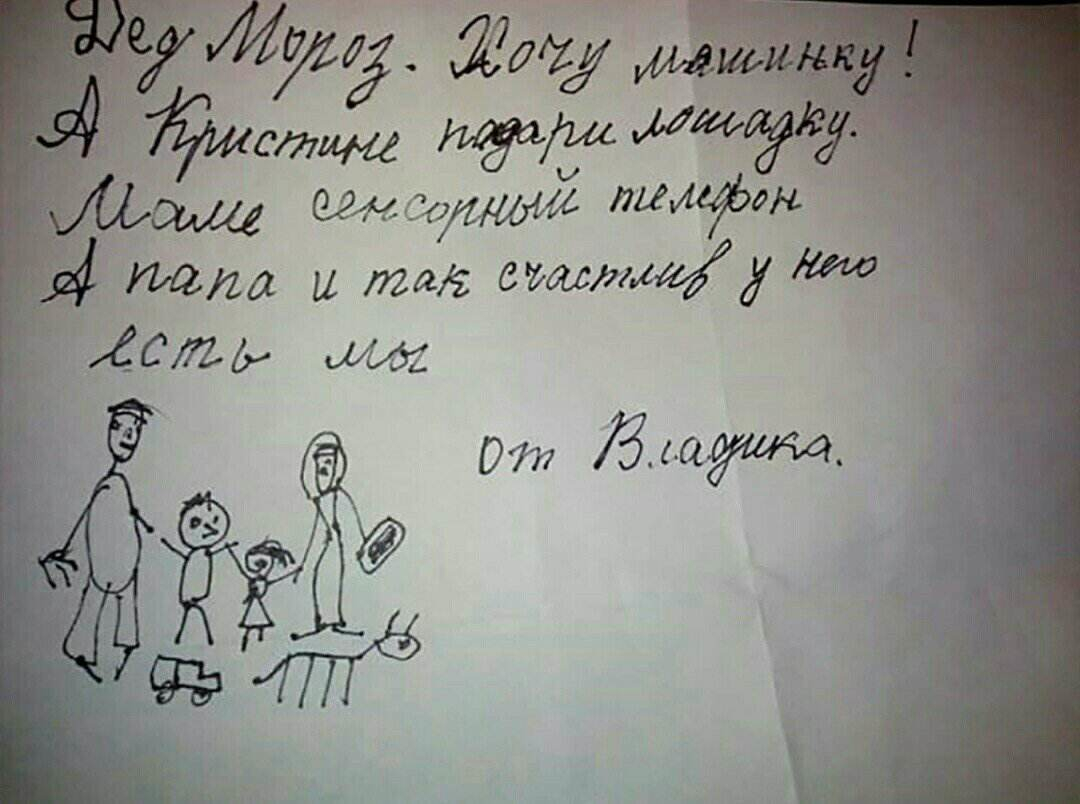 Дед Мороз. Хочу машинку!
А Кристине падари лошадку.
Маме сенсорный телефон
А папа и так счастлив у него
есть мы
от Владика.